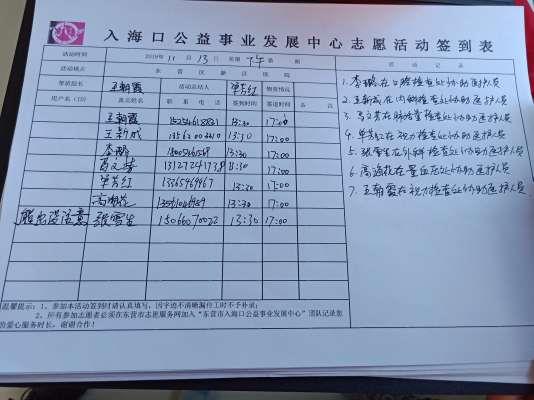 入海口公益事业发展中心志愿活动签到表
活动时间 2019年 11月 13日 下午
活动地点 东营区 医院
活动记录
签到组长 王朝霞 活动总结人 单芳红 物资情况
用户名（ID） 真实姓名 联系电话 签到时间 签退时间 备注
王朝霞 13:30 17:00
王新成 13:30 17:00
李娜 13:30 17:00
13127241738 13:30 17:00
单芳红 13365469467 13:30 17:00
13:30 17:00
张雪生 15066070022 13:30 17:00
1. 李娜在口腔检查处协助医护人员
2. 王新成在内科检查处协助医护人员
3. 检查处协助医护人员
4. 单芳红在视力检查处协助医护人员
5. 张雪生在外科检查处协助医护人员
6. 在量血压处协助医护人员
7. 王朝霞在视力检查处协助医护人员
温馨提示：1、参加本活动签到时请认真填写，因字迹不清晰漏传工时不予补录；
2、所有参加志愿者必须在东营市志愿服务网加入“东营市入海口公益事业发展中心”团队记录您
的爱心服务时长，谢谢合作！